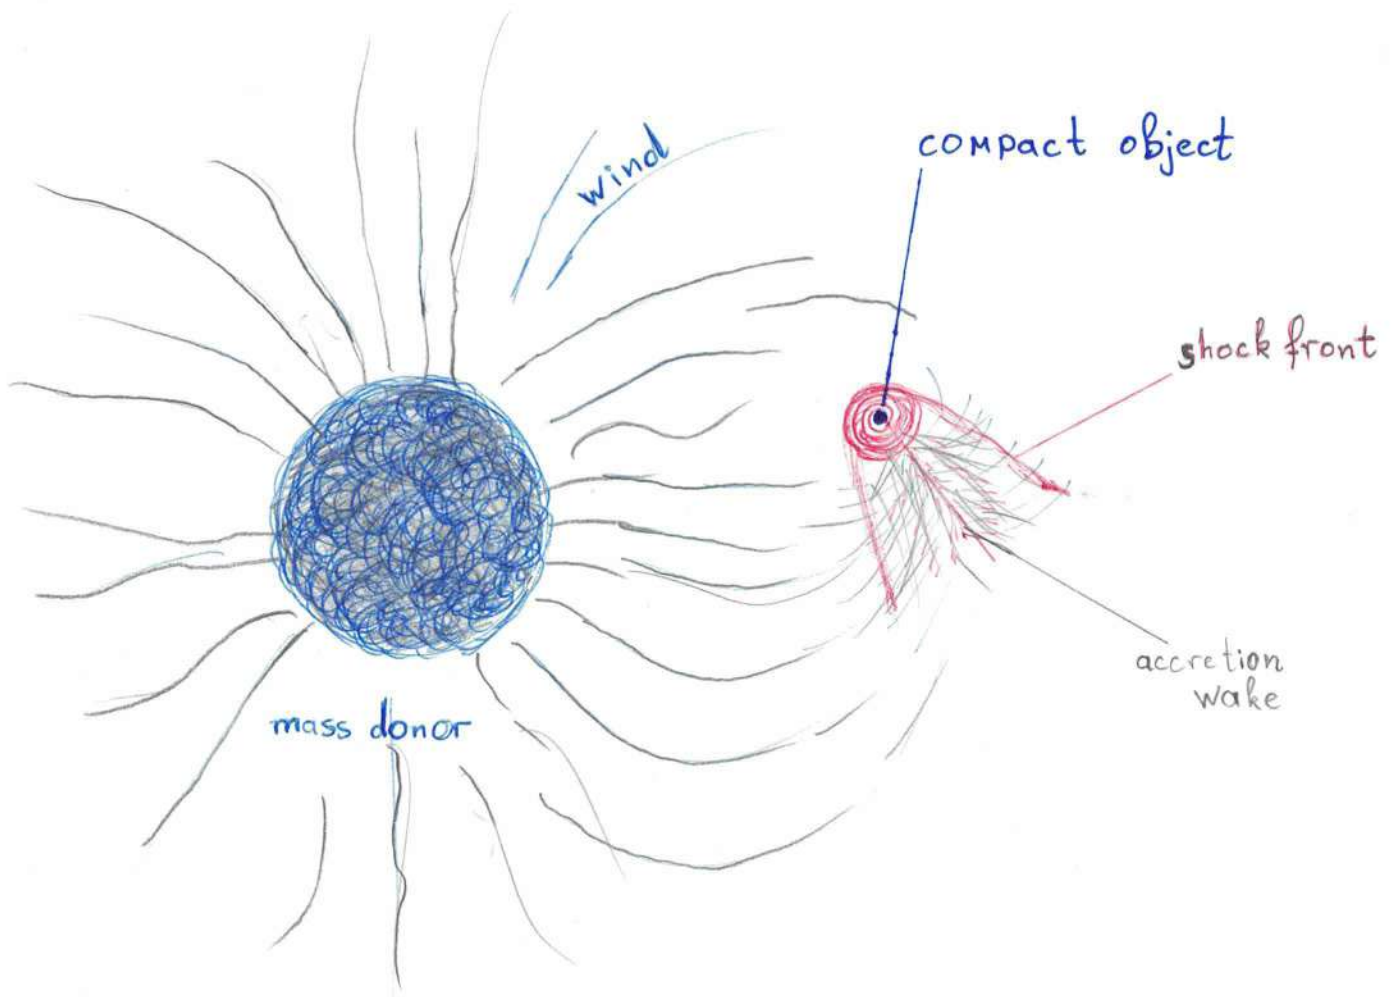 wind
compact object
shock front
accretion
wake
mass donor